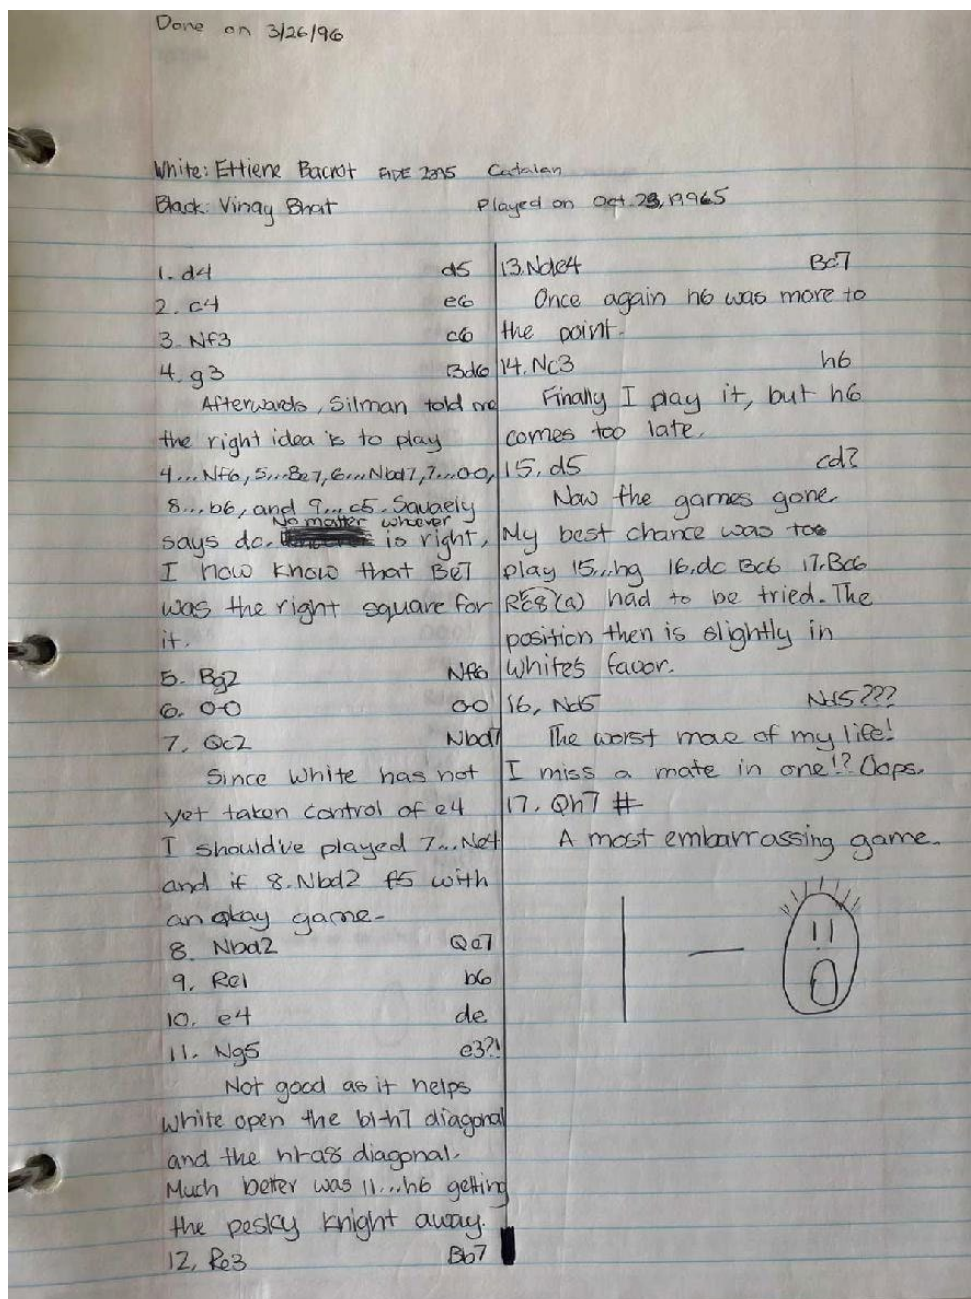 Done on 3/26/96
White: Ettiene Bacrot FIDE 2315 Catalan
Black: Vinay Bhat Played on Oct. 28, 1995
1. d4 d5
2. c4 e6
3. Nf3 c6
4. g3 Bd6
Afterwards, Silman told me
the right idea is to play
4...Nf6, 5...Be7, 6...Nbd7, 7...00,
8...b6, and 9...c5. Sauaely
No matter whoever
says dc. is right,
I now know that Be7
was the right square for
it.
5. Bg2 Nf6
6. 0-0 00
7. Qc2 Nbd7
Since White has not
yet taken control of e4
I should've played 7...Ne4
and if 8. Nbd2 f5 with
an okay game-
8. Nbd2 Qe7
9. Re1 b6
10. e4 de
11. Ng5 e3?!
Not good as it helps
White open the b1-h7 diagonal
and the h1-a8 diagonal.
Much better was 11...h6 getting
the pesky knight away.
12, Re3 Bb7
13. Nde4 Bc7
Once again h6 was more to
the point.
14. Nc3 h6
Finally I play it, but h6
comes too late.
15. d5 cd?
Now the games gone.
My best chance was too
play 15...hg 16.dc Bc6 17.Bc6
RE8 (a) had to be tried. The
position then is slightly in
White's favor.
16, Nd5 Nd5???
The worst move of my life!
I miss a mate in one!? Oops.
17. Qh7 #
A most embarrassing game.
1 -